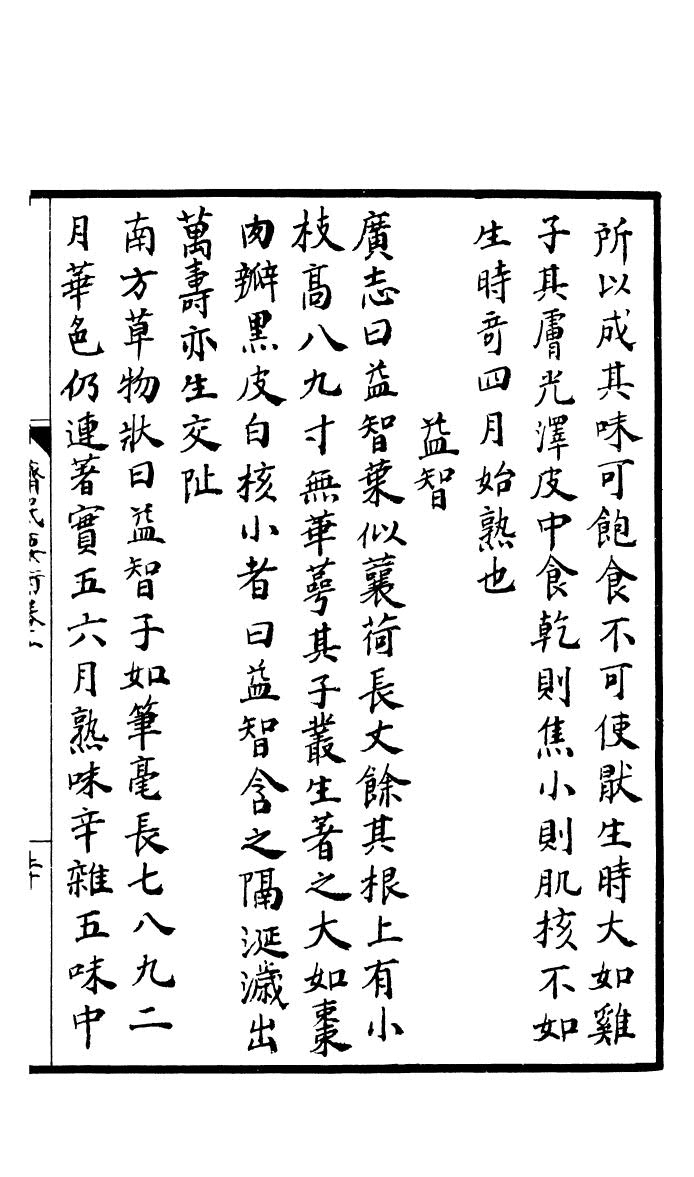 所以成其味可飽食不可使猒生時大如雞
子其膚光澤皮中食乾則焦小則肌核不如
生時奇四月始熟也
益智
廣志曰益智葉似蘘荷長丈餘其根上有小
枝高八九寸無華萼其子叢生著之大如棗
肉瓣黑皮白核小者曰益智含之隔涎濊出
萬壽亦生交阯
南方草物狀曰益智子如筆毫長七八九二
月華色仍連著實五六月熟味辛雜五味中
齊民要術卷十